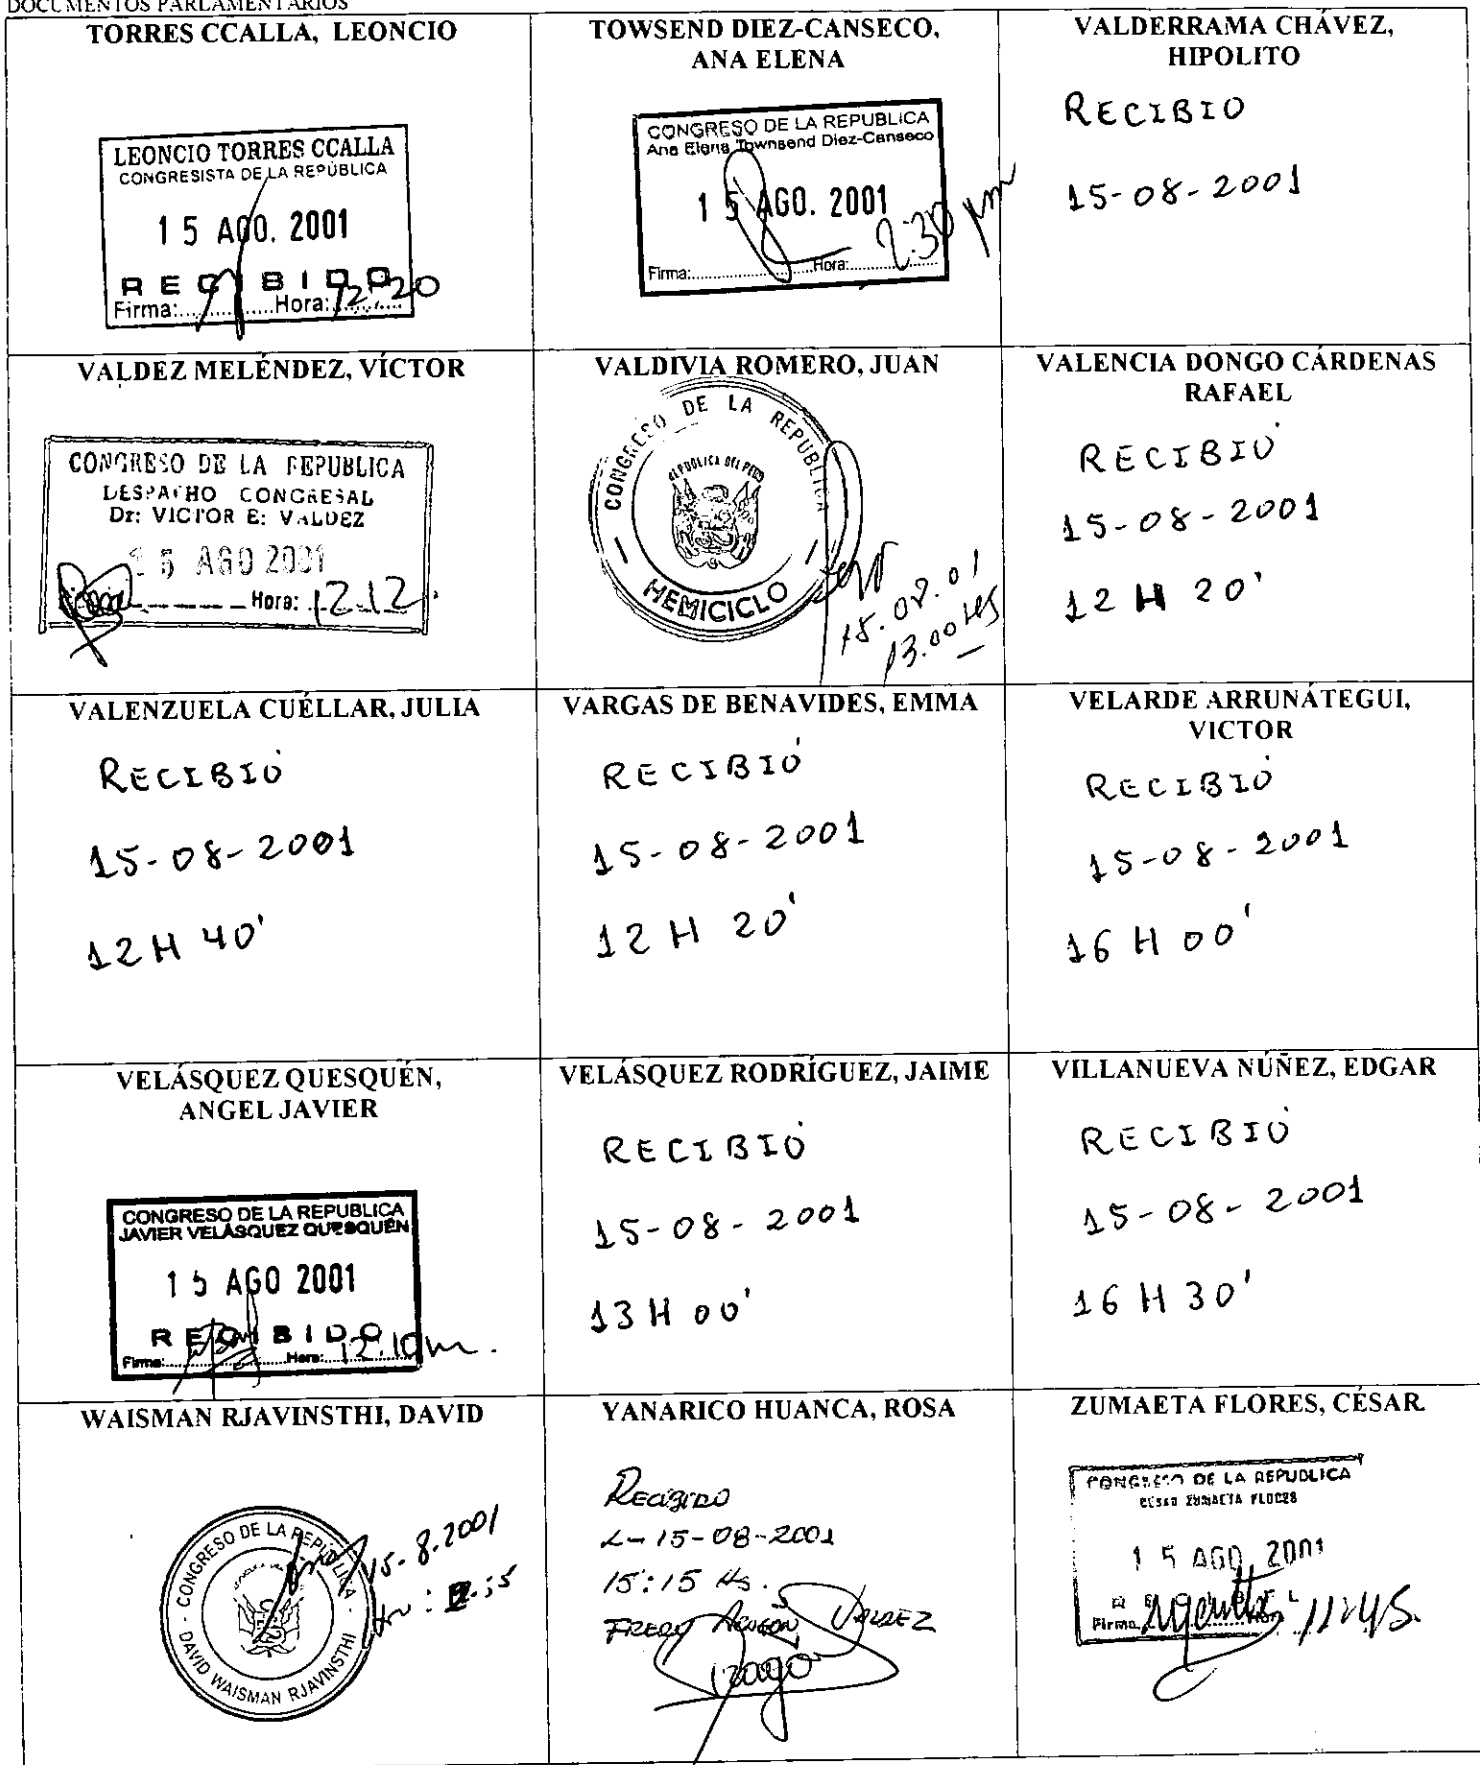 DOCUMENTOS PARLAMENTARIOS
TORRES CCALLA, LEONCIO
LEONCIO TORRES CCALLA
CONGRESISTA DE LA REPÚBLICA
15 AGO. 2001
RECIBIDO
Firma:..............Hora: 12:20
TOWSEND DIEZ-CANSECO,
ANA ELENA
CONGRESO DE LA REPUBLICA
Ana Elena Townsend Diez-Canseco
15 AGO. 2001
Firma:..............Hora: 2:30 pm
VALDERRAMA CHÁVEZ,
HIPOLITO
RECIBIO
15-08-2001
VALDEZ MELÉNDEZ, VÍCTOR
CONGRESO DE LA REPUBLICA
DESPACHO CONGRESAL
Dr: VICTOR E: VALDEZ
15 AGO 2001
Hora: 12.12.
VALDIVIA ROMERO, JUAN
CONGRESO DE LA REPUBLICA
REPUBLICA DEL PERU
HEMICICLO
15.08.01
13.00 HS
VALENCIA DONGO CÁRDENAS
RAFAEL
RECIBIÓ
15-08-2001
12 H 20'
VALENZUELA CUÉLLAR, JULIA
RECIBIÓ
15-08-2001
12 H 40'
VARGAS DE BENAVIDES, EMMA
RECIBIÓ
15-08-2001
12 H 20'
VELARDE ARRUNÁTEGUI,
VICTOR
RECIBIÓ
15-08-2001
16 H 00'
VELÁSQUEZ QUESQUÉN,
ANGEL JAVIER
CONGRESO DE LA REPUBLICA
JAVIER VELÁSQUEZ QUESQUÉN
15 AGO 2001
RECIBIDO
Firma:..............Hora: 12:10 m.
VELÁSQUEZ RODRÍGUEZ, JAIME
RECIBIÓ
15-08-2001
13 H 00'
VILLANUEVA NÚÑEZ, EDGAR
RECIBIÓ
15-08-2001
16 H 30'
WAISMAN RJAVINSTHI, DAVID
CONGRESO DE LA REPÚBLICA
DAVID WAISMAN RJAVINSTHI
15-8.2001
YANARICO HUANCA, ROSA
Recibido
15-08-2001
15:15 Hs.
FREDY ARAGÓN VALDEZ
ZUMAETA FLORES, CÉSAR
CONGRESO DE LA REPUBLICA
CESAR ZUMAETA FLORES
15 AGO. 2001
Firma 11:45.